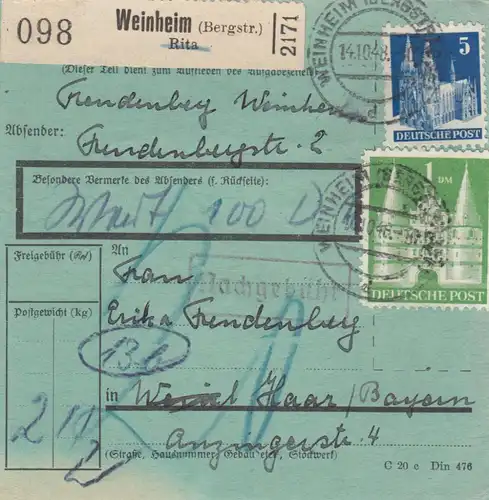 098
Weinheim (Bergstr.)
Rita
2171
WEINHEIM (BERGSTR
14.10.48.
5
DEUTSCHE POST
(Dieser Teil dient zum Aufkleben des Aufgabezettels)
Freudenberg Weinheim
Absender:
Freudenbergstr. 2
Besondere Vermerke des Absenders (s. Rückseite):
100
WEINHEIM (BERGSTR
1 DM
DEUTSCHE POST
Freigebühr (Rpf)
Postgewicht (kg)
An
Frau
Nachgebühr
Erika Freudenberg
in Haar/Bayern
Anzingerstr. 4
(Straße, Hausnummer, Gebäudeteil, Stockwerk)
C 20 c Din 476